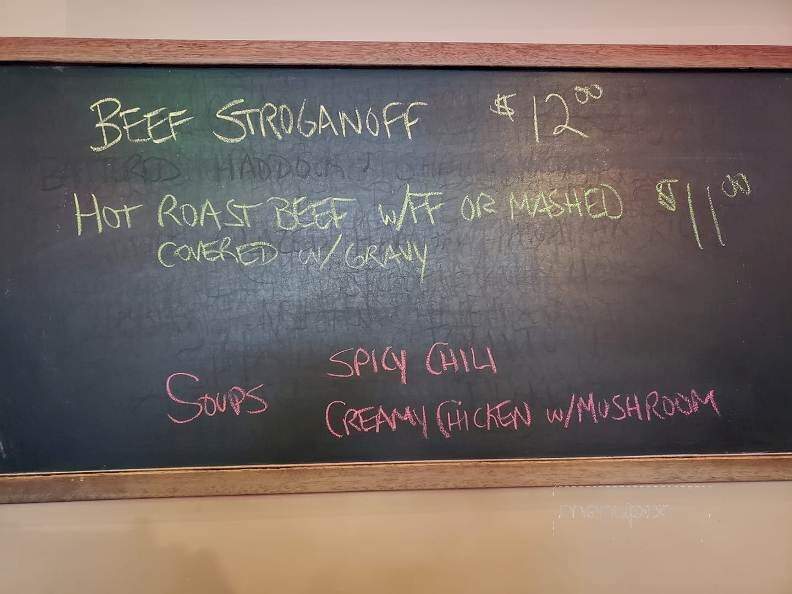 BEEF STROGANOFF $12.00
HOT ROAST BEEF W/FF OR MASHED $11.00
COVERED W/ GRAVY
SPICY CHILI
SOUPS
CREAMY CHICKEN W/MUSHROOM